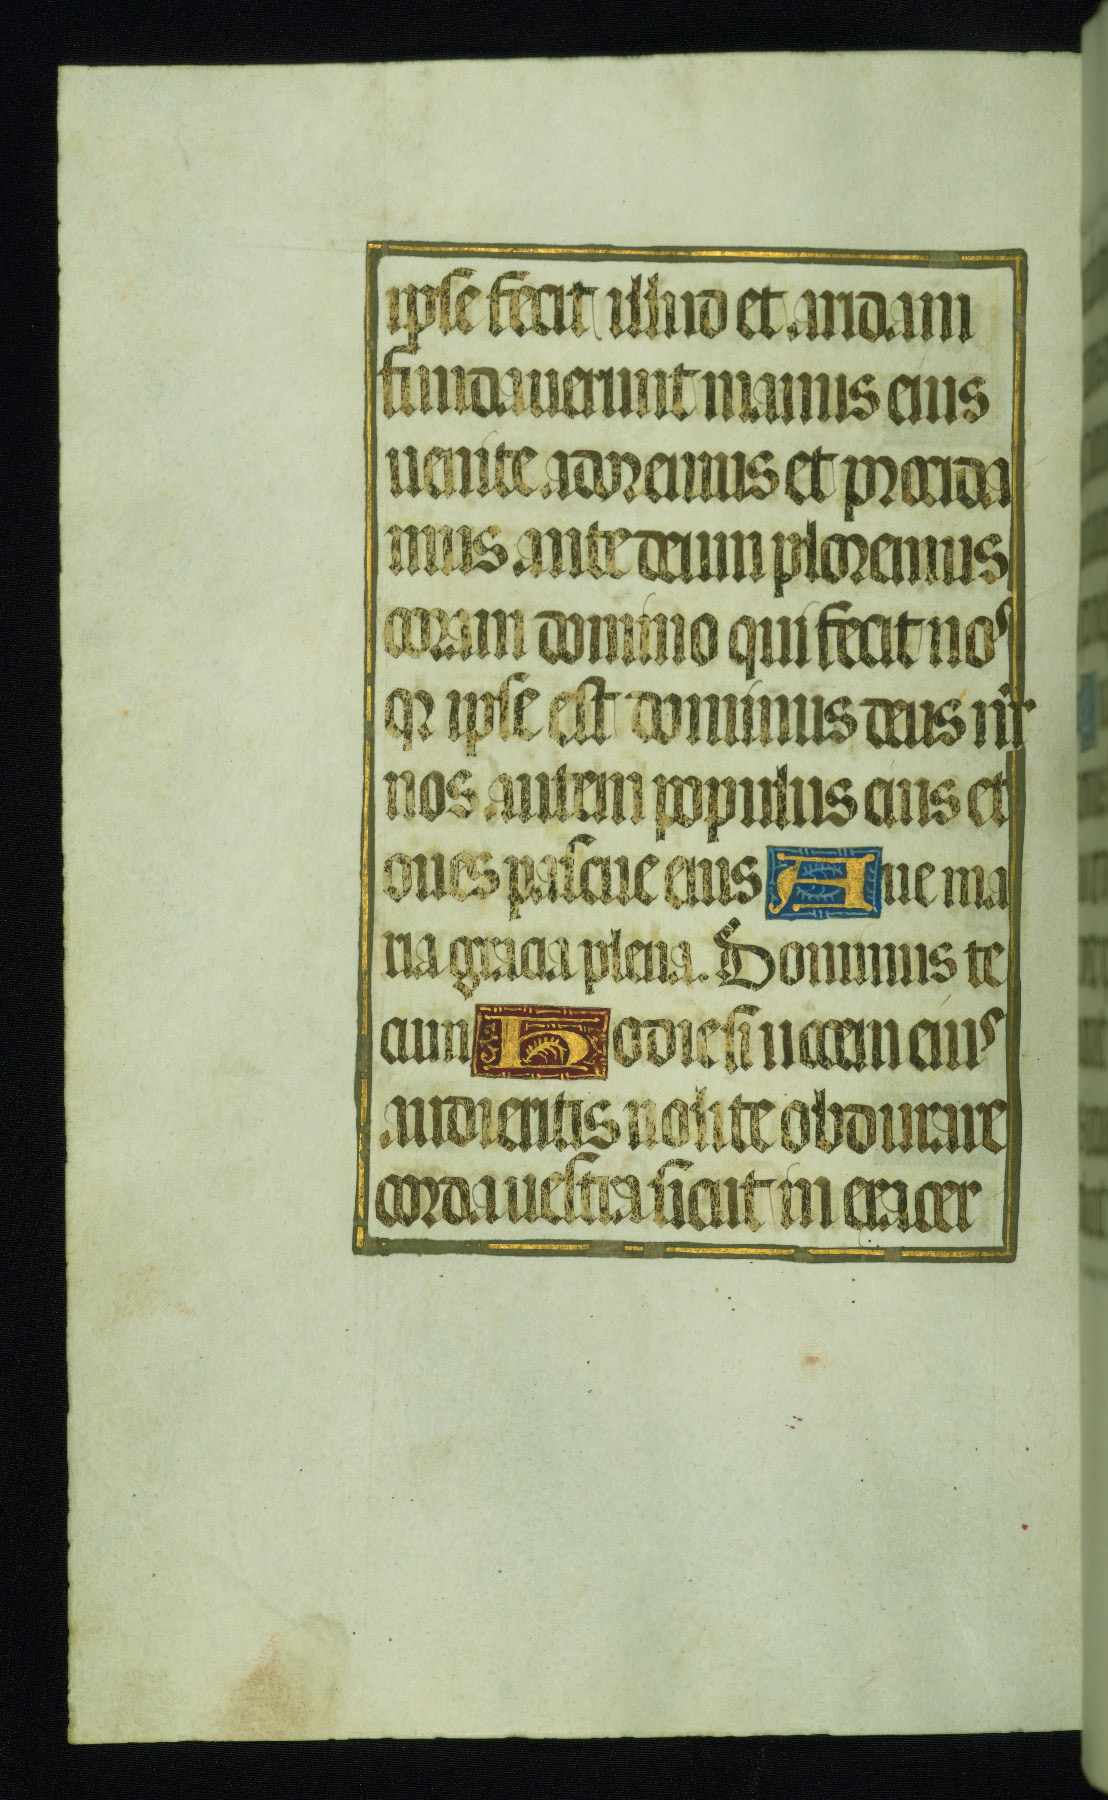 ipse fecit illud et aridam
fundauerunt manus eius
uenite adoremus et procida
mus ante deum ploremus
coram domino qui fecit nos
qr ipse est dominus deus nr
nos autem populus eius et
oues pascue eius Aue ma
ria gracia plena. Dominus te
cum Hodie si uocem eius
audieritis nolite obdurare
corda uestra sicut in exacer